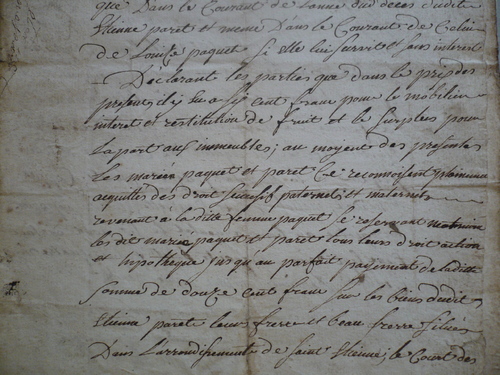 que dans le Courant de lanné du deces dudit
Etienne paret et meme dans le Courant de Celui
de Louise paquet si elle lui survit et sans interest
Déclarant les parties que dans le prix des
presentes il y en a cent franc pour le mobilier
interet et restitution de fruit et le surplus pour
la part aux immeubles; au moyen des presentes
les mariés paquet et paret se reconnoissent
aquittés des droit sucessif paternels et maternels
revenant a la ditte femme paquet se reservant
les dit mariés paquet et paret tous leurs droit action
et hipotheque jusqu au parfait payement de la ditte
somme de douze cent franc sur les biens dudit
Etienne paret leur frere et beau frerre situés
Dans larrondissement de saint Etienne; le Court des